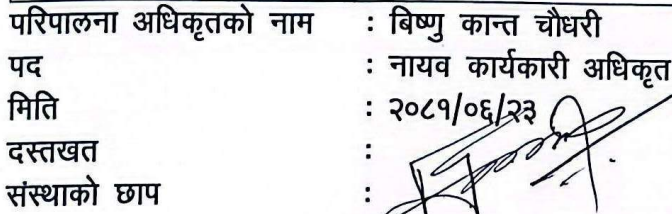 परिपालना अधिकृतको नाम : बिष्णु कान्त चौधरी
पद : नायव कार्यकारी अधिकृत
मिति : २०८१/०६/२३
दस्तखत :
संस्थाको छाप :